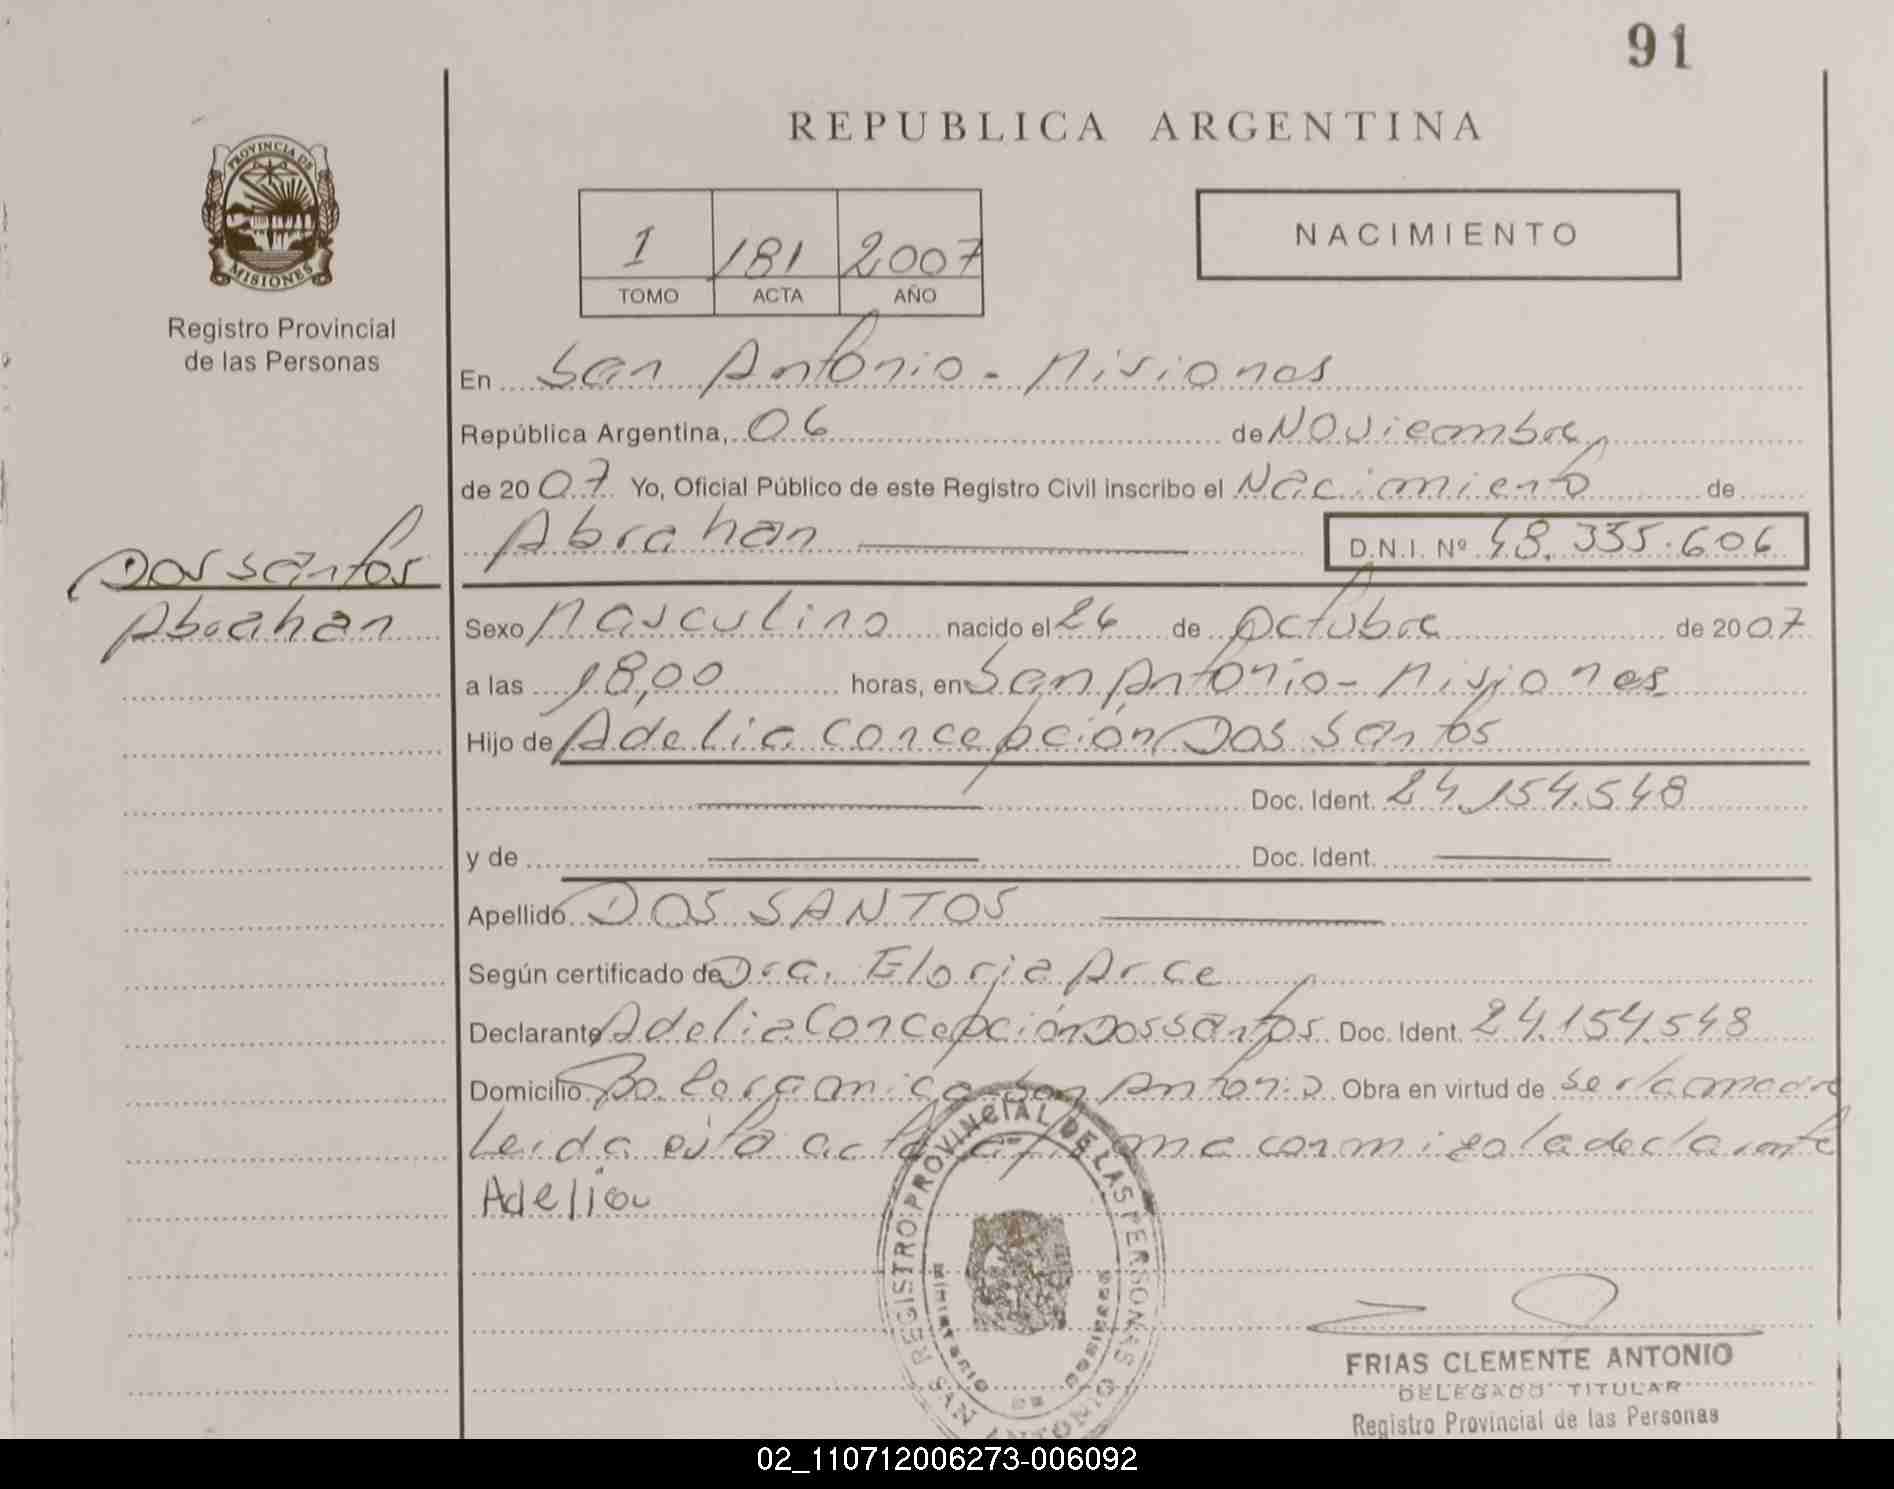 91
REPUBLICA ARGENTINA
PROVINCIA DE
MISIONES
Registro Provincial
de las Personas
1 181 2007
TOMO ACTA AÑO
NACIMIENTO
En San Antonio - Misiones
República Argentina, 06 de Noviembre
de 2007 Yo, Oficial Público de este Registro Civil inscribo el Nacimiento de
Abrahan D.N.I. Nº 48.335.606
Dos santos
Abrahan
Sexo Masculino nacido el 26 de Octubre de 2007
a las 18,00 horas, en San Antonio - Misiones
Hijo de Adelia Concepción Dos Santos
Doc. Ident. 24.154.548
y de Doc. Ident.
Apellido DOS SANTOS
Según certificado de Dra. Arce
Declarante Adelia Concepción Dos santos Doc. Ident. 24.154.548
Domicilio Bo. San Antonio Obra en virtud de ser la madre
Leida esta acta firma conmigo la declarante
Adelia
REGISTRO PROVINCIAL DE LAS PERSONAS
SAN ANTONIO
FRIAS CLEMENTE ANTONIO
DELEGADO TITULAR
Registro Provincial de las Personas
02_110712006273-006092